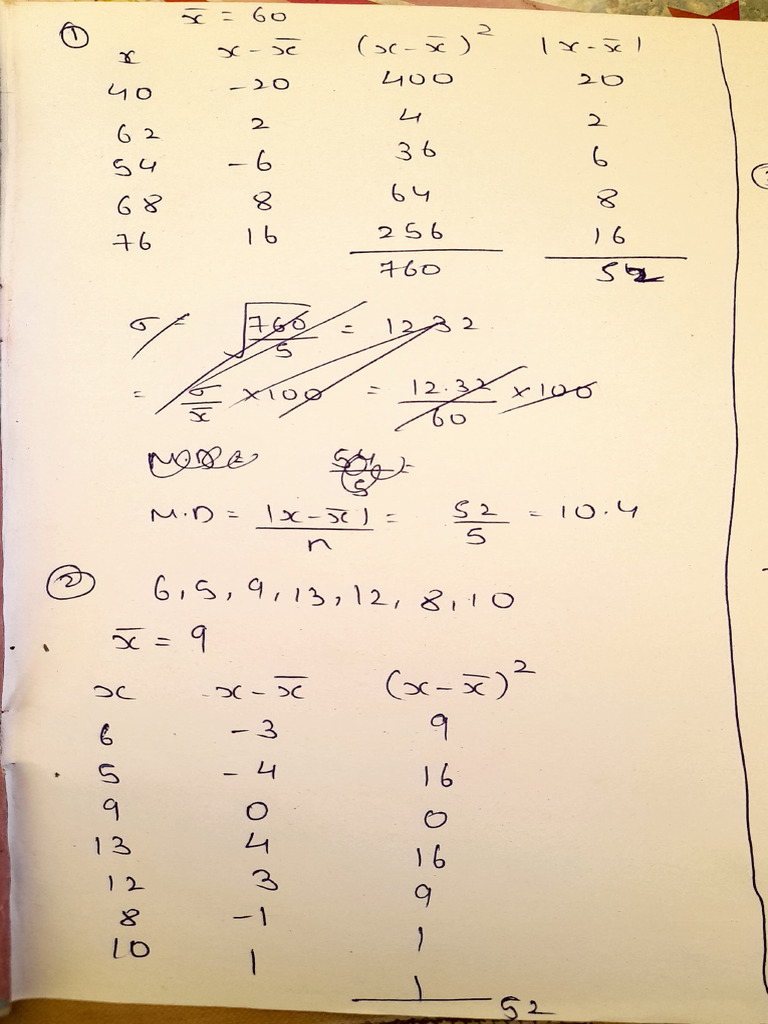 ① x̄ = 60
x x-x̄ (x-x̄)² |x-x̄|
40 -20 400 20
62 2 4 2
54 -6 36 6
68 8 64 8
76 16 256 16
760 52
σ = √760/5 = 12.32
= σ/x̄ ×100 = 12.32/60 ×100
M.D = |x-x̄|/n = 52/5 = 10.4
② 6, 5, 9, 13, 12, 8, 10
x̄ = 9
x x-x̄ (x-x̄)²
6 -3 9
5 -4 16
9 0 0
13 4 16
12 3 9
8 -1 1
10 1 1
52